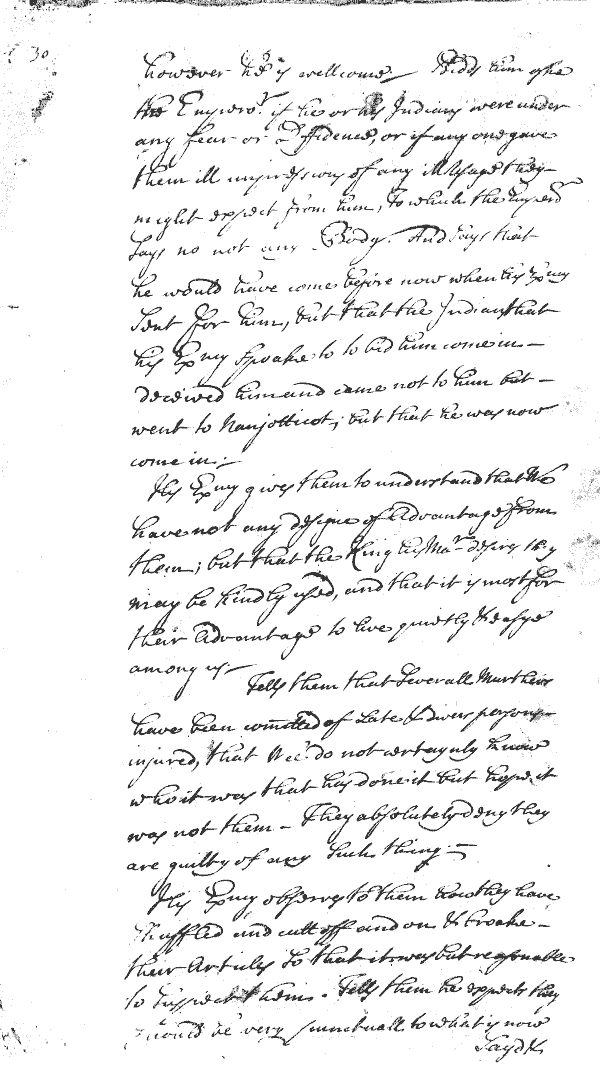 30
however he is wellcome — Bidds him aske
the Empero:r if he or his Indians were under
any fear or Diffidence, or if any one gave
them ill impressions of any Message they
might expect from him, to which the Emperor
says no not any Body. And Says that
he would have come before now when his Ex:ncy
Sent for him, but that the Indian that
his Ex:ncy Spoake to to bid him come in —
deceived him and came not to him but —
went to Nanjotticot; but that he was now
come in; —
His Ex:ncy gives them to understand that We
have not any designe of Advantage from
them; but that the King his Ma:tie desires they
may be kindly used, and that it is most for
their Advantage to live quietly &
among us —
Tells them that Severall Murthers
have been comitted of Late & divers persons
injured, that Wee do not certaynly know
who it was that has done it but hopes it
was not them — They absolutely deny they
are guilty of any Such thing; —
His Ex:ncy observes to them how they have
Shuffled and cutt off and on & broake —
their Articles So that it was but reasonable
to Suspect them. Tells them he expects they
should be very punctuall to what is now
Sayd &